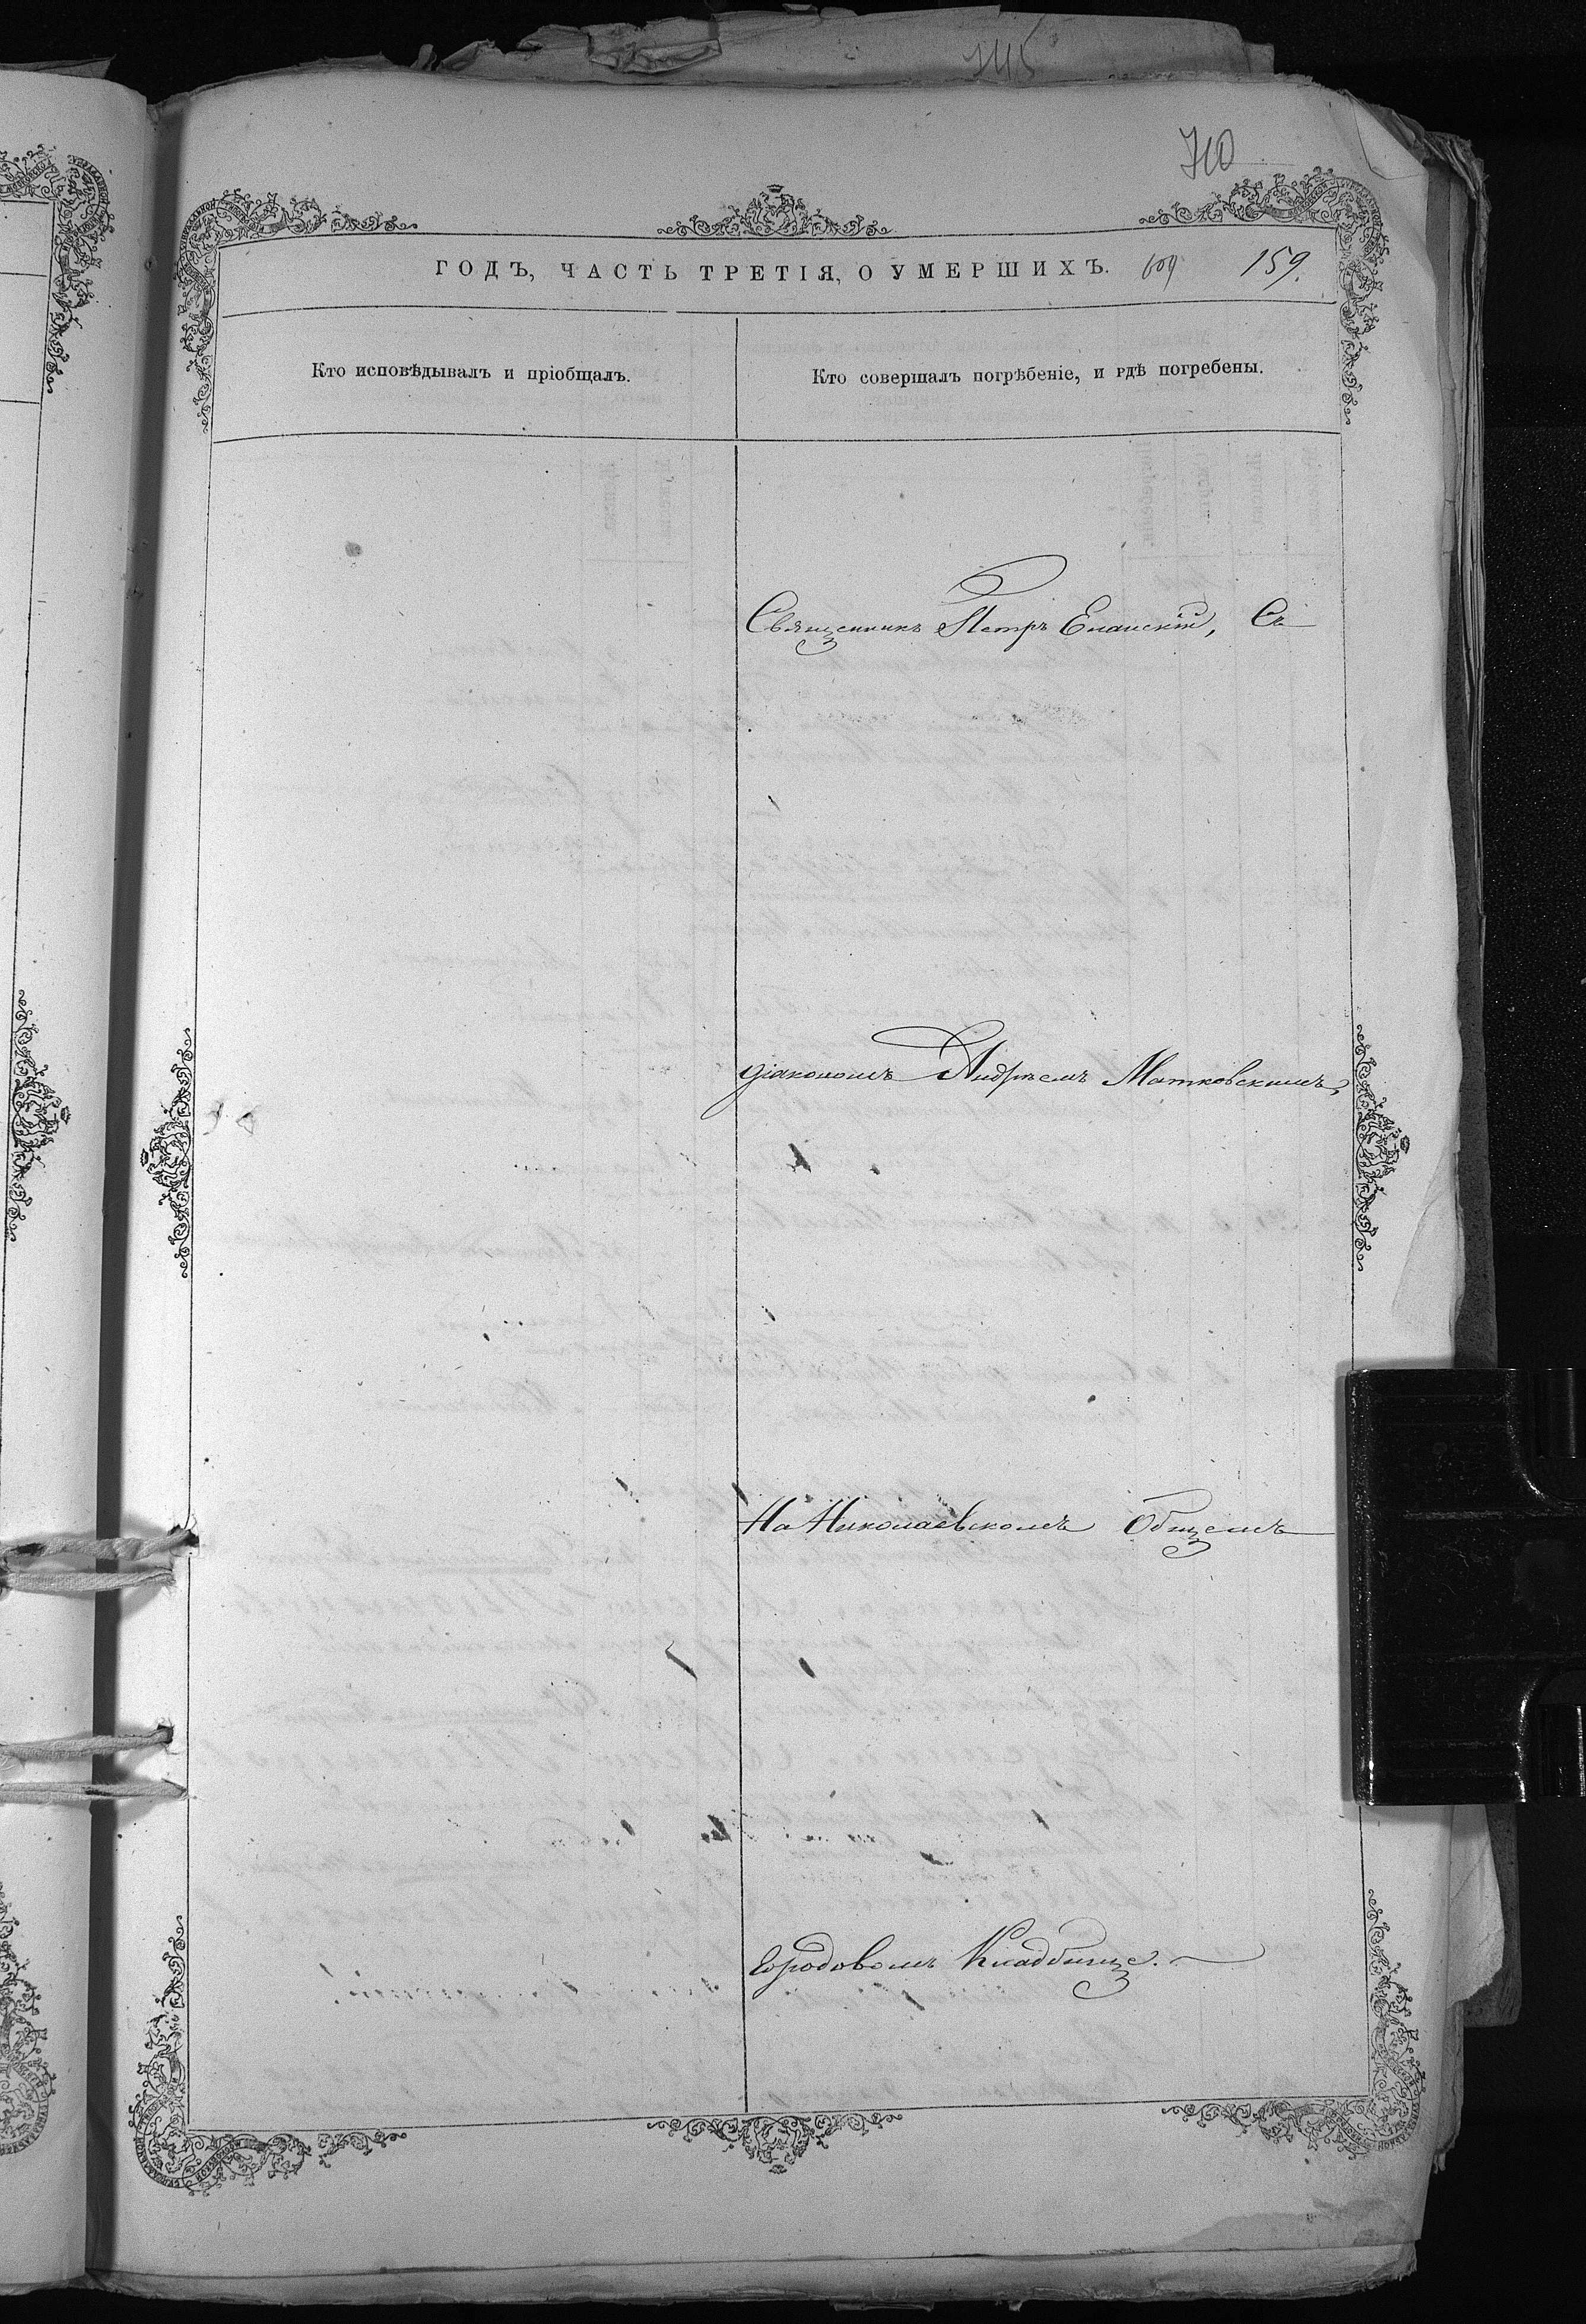 710
ГОДЪ, ЧАСТЬ ТРЕТІЯ, О УМЕРШИХЪ. 609 159.
Кто исповѣдывалъ и пріобщалъ.
Кто совершалъ погрѣбеніе, и гдѣ погребены.
Священникъ Петръ Еланскій, Съ
діакономъ Андреемъ Матковскимъ,
На Николаевскомъ Общемъ
Городовомъ Кладбище.